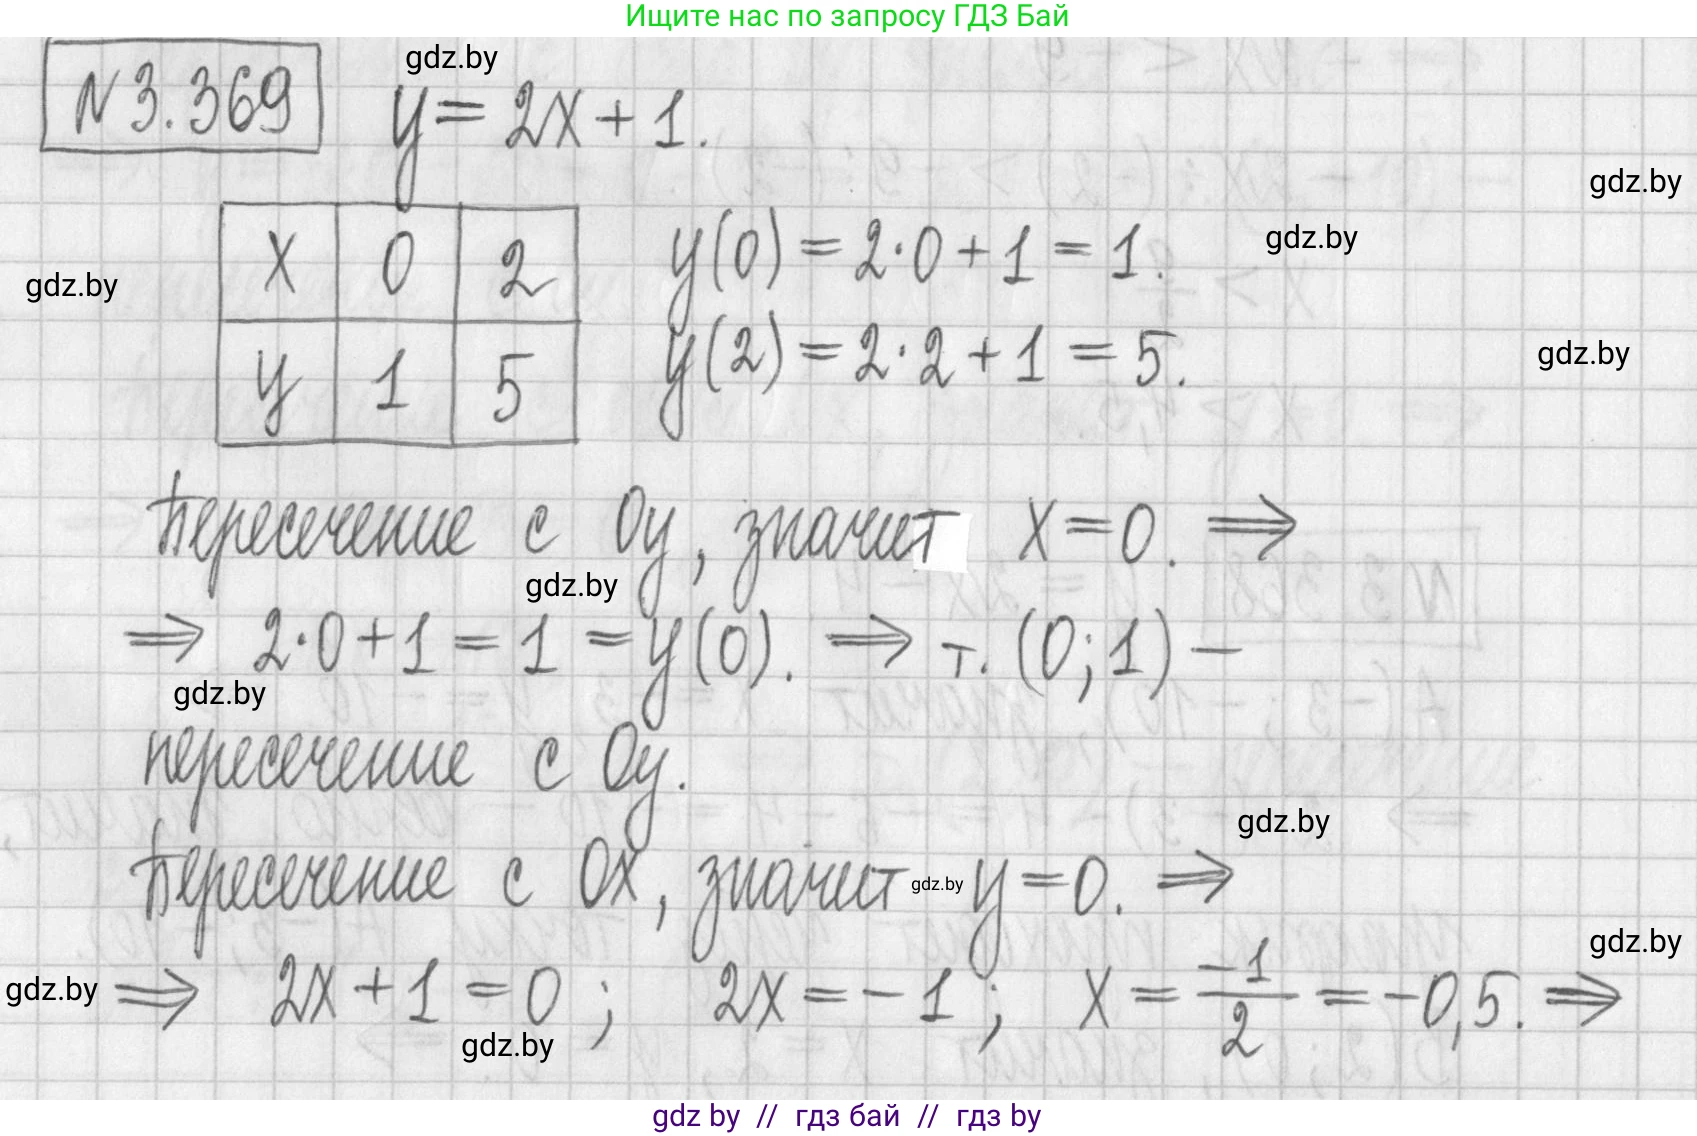 Ищите нас по запросу ГДЗ Бай
gdz.by
N3.369 y = 2x + 1.
gdz.by
x 0 2 y(0) = 2·0 + 1 = 1. gdz.by
gdz.by
y 1 5 y(2) = 2·2 + 1 = 5. gdz.by
Пересечение с Oy, значит x = 0. ⇒
gdz.by
⇒ 2·0 + 1 = 1 = y(0). ⇒ т. (0; 1) –
gdz.by
пересечение с Oy.
gdz.by
Пересечение с Ox, значит gdz.by y = 0. ⇒
gdz.by
gdz.by ⇒ 2x + 1 = 0 ; 2x = -1 ; x = -1/2 = -0,5. ⇒
gdz.by
gdz by // гдз бай // гдз by